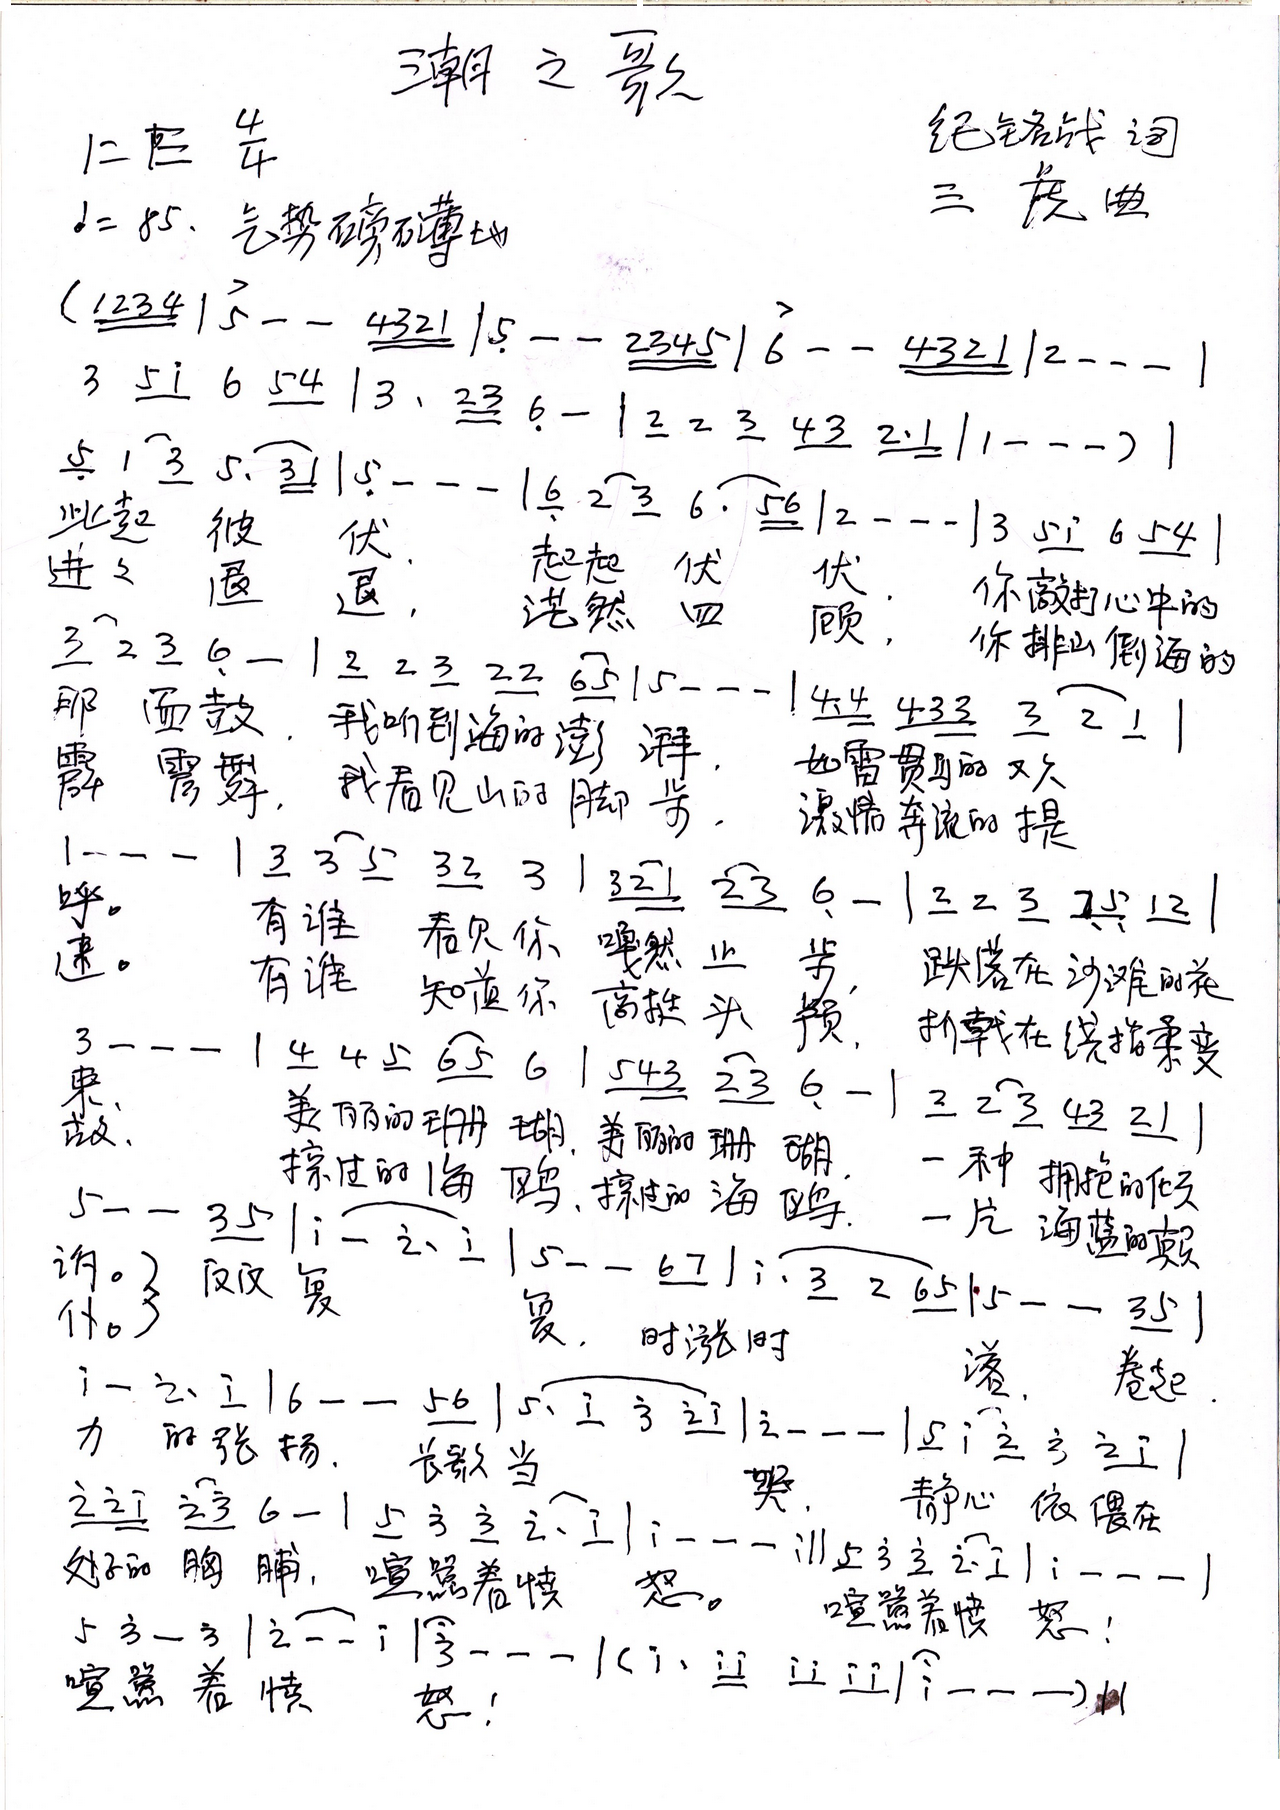 潮之歌
1=E 4/4
纪铭战 词
♩=85. 气势磅礴地
三虎 曲
(1234 | 5 - - 4321 | 5 - - 2345 | 6 - - 4321 | 2 - - - |
3 51 6 54 | 3. 23 6 - | 2 2 3 43 2.1 | 1 - - -) |
5 1 3 5. 31 | 5 - - - | 6 2 3 6. 56 | 2 - - - | 3 51 6 54 |
此起 彼 伏. 起起 伏 伏. 你敲打心中的
进々 退 退, 茫然 四 顾, 你排山倒海的
3 2 3 6 - | 2 2 3 22 65 | 5 - - - | 4.4 433 3 2 1 |
那 面鼓. 我听到海的澎 湃. 如雷贯耳的 欢
霹 雳舞, 我看见山的脚 步. 激情奔流的 提
1 - - - | 3 3 5 32 3 | 321 23 6 - | 2 2 3 25 12 |
呼。 有谁 看见你 嘎然 止 步, 跌落在沙滩的花
速。 有谁 知道你 高挺 头 颅, 折戟在绕指柔变
3 - - - | 4 4 5 65 6 | 543 23 6 - | 2 2 3 43 21 |
束、 美丽的珊 瑚, 美丽的珊 瑚. 一种 拥抱的倾
故. 掠过的海 鸥、掠过的海 鸥. 一片 海蓝的
5 - - 35 | i - 2. i | 5 - - 67 | i. 3 2 65 | 5 - - 35 |
诉。} 反反 复 复. 时涨时 落. 卷起.
仆。}
i - 2. i | 6 - - 56 | 5. i 3 2i | 2 - - - | 5 i 2 3 2i |
力 的张 扬. 长歌当 哭. 静心 依 偎在
22i 23 6 - | 5 3 3 2. i | i - - - :|| 5 3 3 2.i | i - - - |
处子的 胸 脯, 喧嚣着愤 怒。 喧嚣着愤 怒!
5 3 - 3 | 2 - - i | 3 - - - | (i. ii ii ii | i - - -) ||
喧嚣 着 愤 怒!